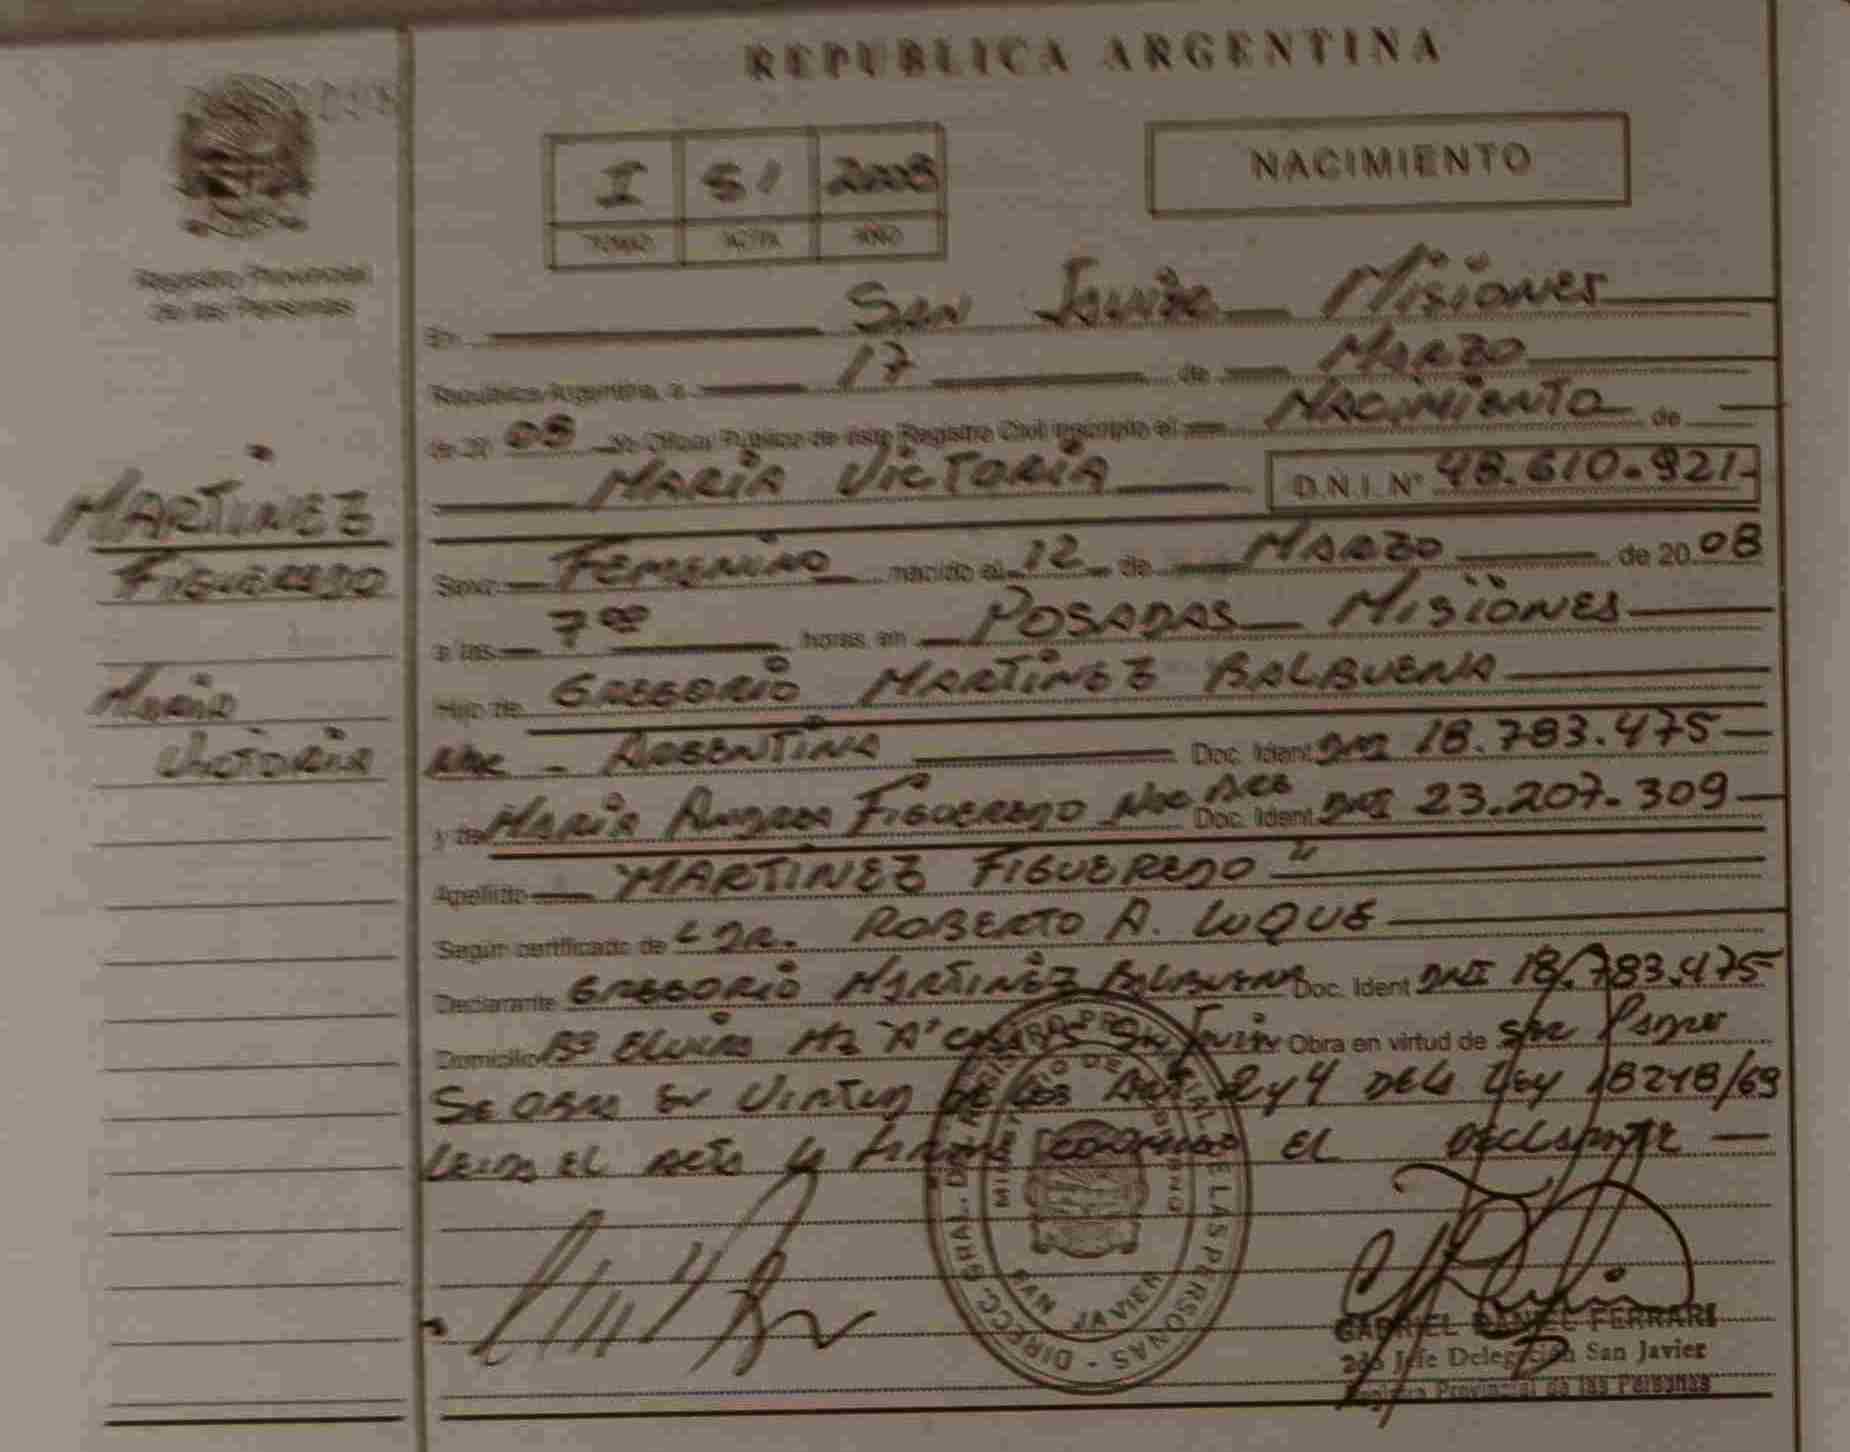 REPUBLICA ARGENTINA
Registro Provincial
de las Personas
I 51 2008
TOMO ACTA AÑO
NACIMIENTO
En San Javier Misiones
República Argentina, a 17 de Marzo
de 20 08 Yo Oficial Público de este Registro Civil inscribo el Nacimiento de
MARIA VICTORIA D.N.I. Nº 48.610.921-
MARTINEZ
FIGUEREDO
Maria
Victoria
Sexo Femenino nacido el 12 de MARZO de 20 08
a las 7 00 horas, en POSADAS Misiones
Hijo de GREGORIO MARTINEZ BALBUENA
Nac - ARGENTINA Doc. Ident DNI 18.783.475
y de MARIA Andrea FIGUEREDO Nac ARG Doc. Ident DNI 23.207.309
Apellido MARTINEZ FIGUEREDO "
Según certificado de DR. ROBERTO A. LUQUE
Declarante GREGORIO MARTINEZ BALBUENA Doc. Ident DNI 18.783.475
Domicilio Bº Elvira Mz "A" CASA Sn Javier Obra en virtud de
Se OBRA En Virtud DE LOS Art 2y4 DELA Ley 18248/69
Leida EL ACTA la firma conmigo EL DECLARANTE
DIRECC. GRAL. DEL REGISTRO PROVINCIAL DE LAS PERSONAS
MINISTERIO DE GOBIERNO
SAN JAVIER
GABRIEL DANIEL FERRARI
2do Jefe Delegación San Javier
Registro Provincial de las Personas